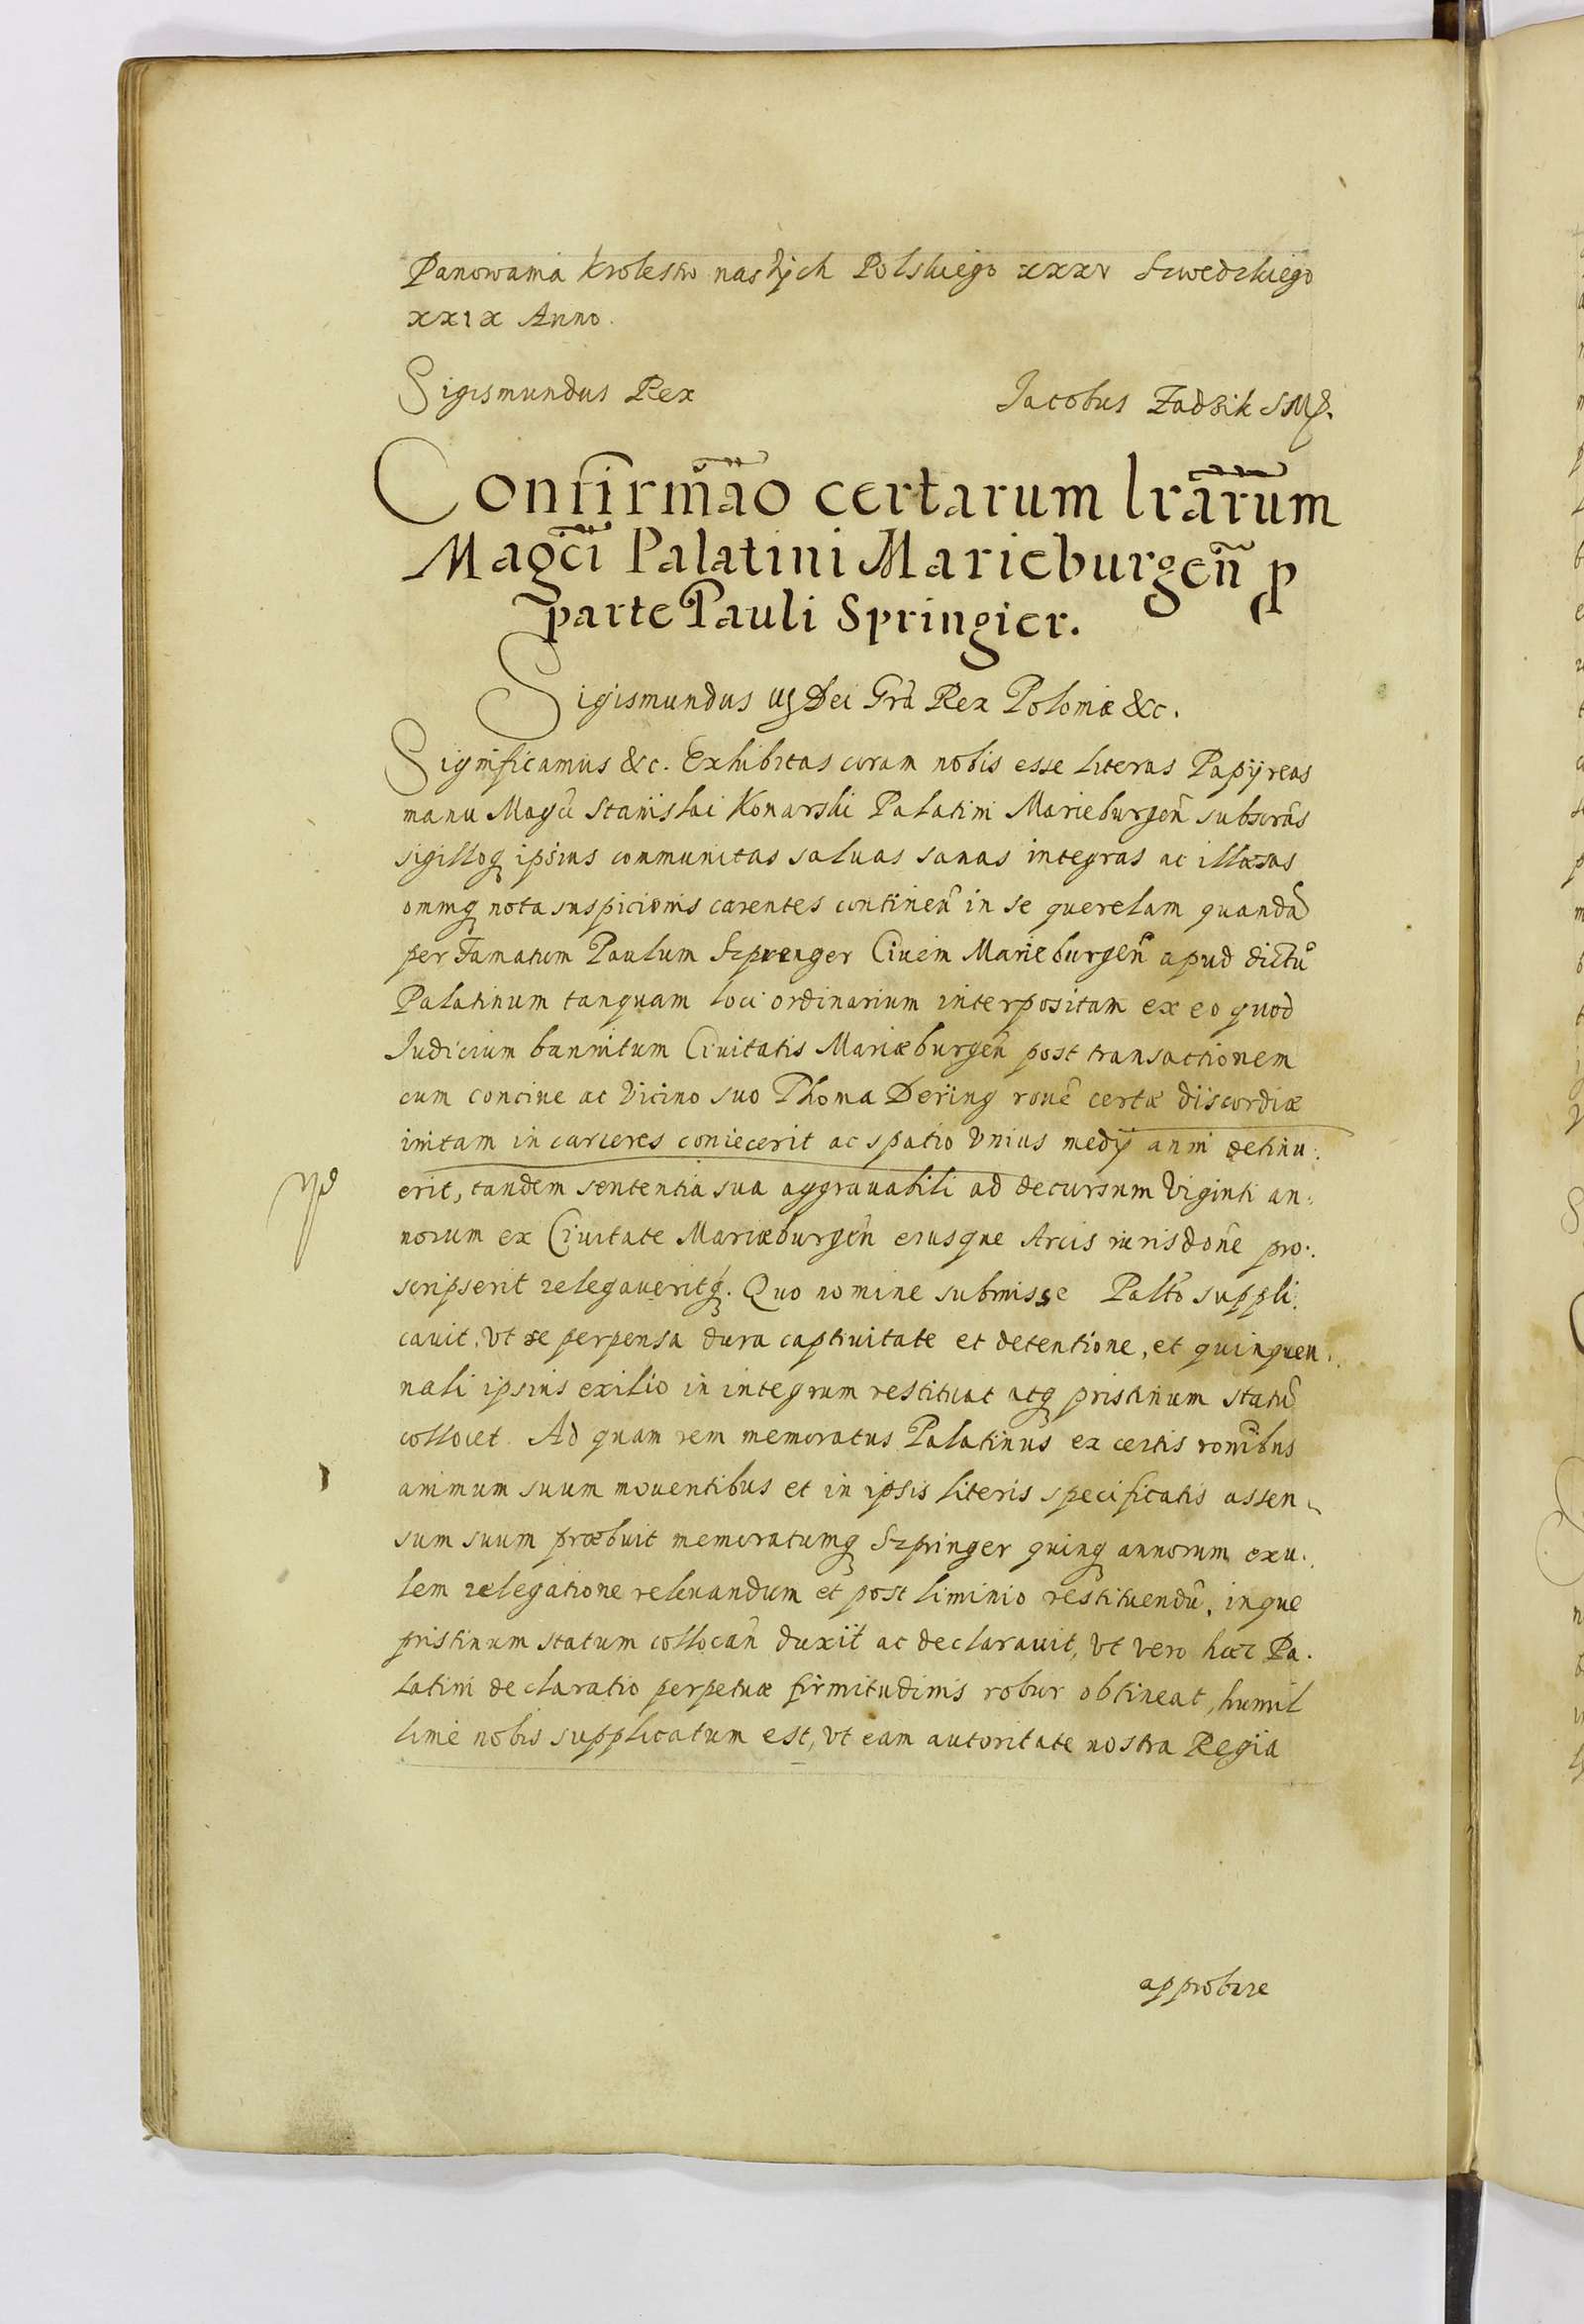 Panowania krolestw naszych Polskiego xxxv Szwedzkiego
xxıx Anno.
Sigismundus Rex
Jacobus Zadzik SMP.
Confirmão certarum lrãrum
Magci Palatini Marieburgeñ p
parte Pauli Springier.
Sigismundus IIJ Dei Grã Rex Poloniæ &c.
Significamus &c. Exhibitas coram nobis esse literas Papÿreas
manu Magci Stanislai Konarski Palatini Marieburgeñ subscrãs
sigilloq ipsius communitas saluas sanas integras ac illæsas
omniq nota suspicionis carentes continen̄ in se querelam quandã
per Famatum Paulum Szprenger Ciuem Marieburgeñ apud dictũ
Palatinum tanquam loci ordinarium interpositam ex eo quod
Iudicium bannitum Ciuitatis Mariæburgeñ post transactionem
cum conciue ac Vicino suo Thoma Dering ronẽ certæ discordiæ
initam in carceres coniecerit ac spatio Vnius medÿ anni detinu:
erit, tandem sententia sua aggrauabili ad decursum Viginti an:
norum ex Ciuitate Mariæburgeñ eiusque Arcis iurisdonẽ pro:
scripserit relegaueritq. Quo nomine submisse Palto suppli:
cauit, Vt se perpensa dura captiuitate et detentione, et quinquen:
nali ipsius exilio in integrum restituat atq pristinum statũ
collocet. Ad quam rem memoratus Palatinus ex certis ronibus
animum suum mouentibus et in ipsis literis specificatis assen
sum suum præbuit memoratumq Szpringer quinq annorum exu:
lem relegatione releuandum et post liminio restituendũ, inque
pristinum statum collocañ duxit ac declarauit, Vt vero hæc Pa.
latini declaratio perpetuæ firmitudinis robur obtineat, humil
lime nobis supplicatum est, Vt eam autoritate nostra Regia
approbare